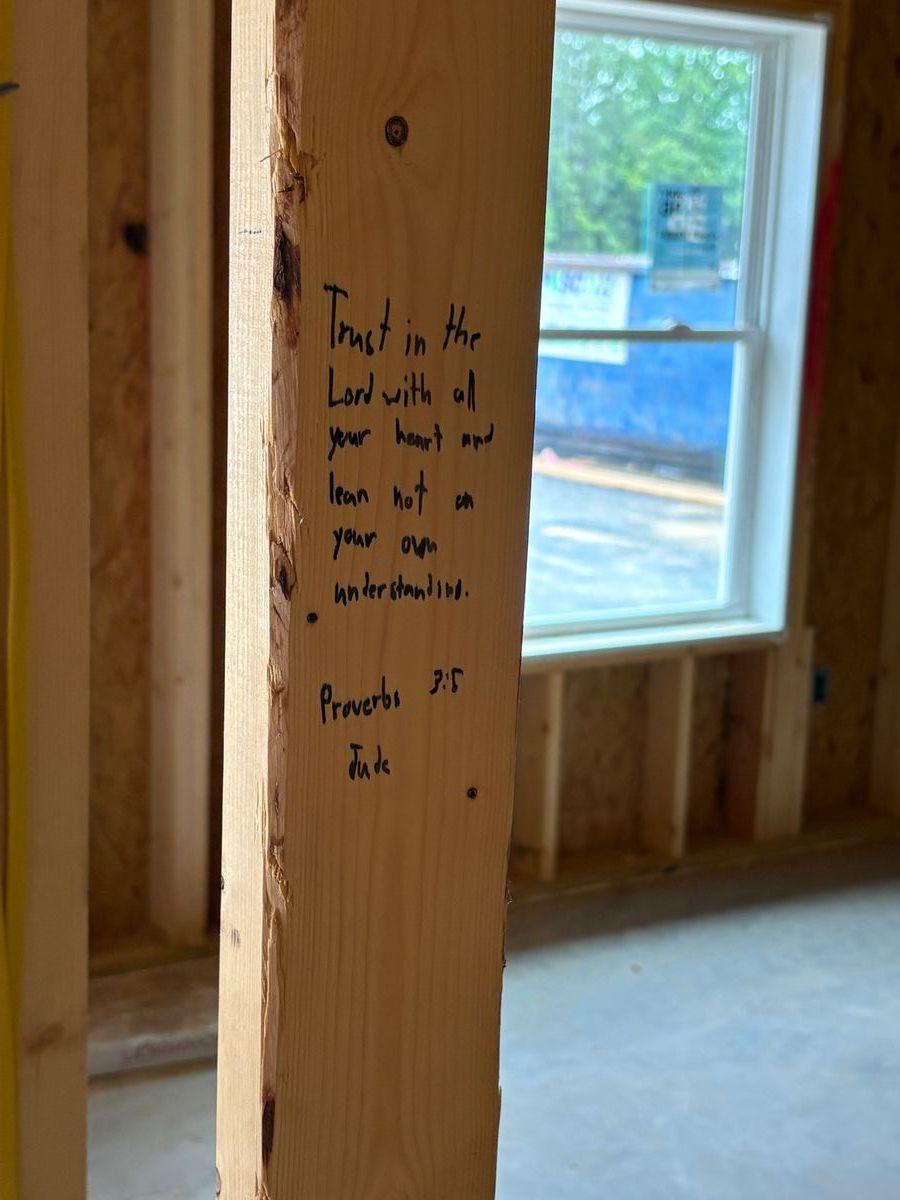 Trust in the
Lord with all
your heart and
lean not on
your own
understanding.
Proverbs 3:5
Jude